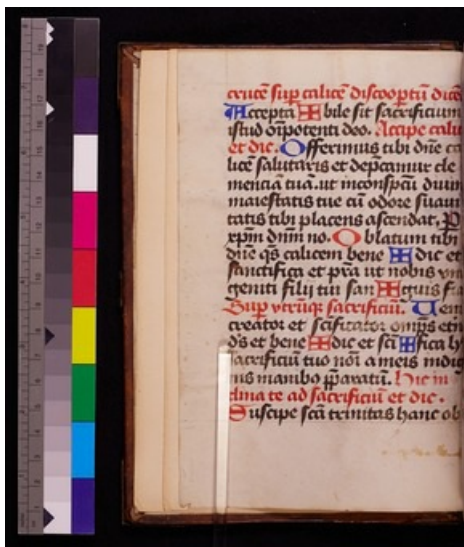 crucē sup calicē discooptū dicē
Accepta ✠ bile sit sacrificium
istud oīpotenti deo. Accipe cali
et dic. Offerimus tibi dn̄e ca
licē salutaris et dep̄camur cle
menciā tuā. ut in conspc̄u diuin
maiestatis tue cū odore suaui
tatis tibi placens ascendat. P
xp̄m dn̄m no. Oblatum tibi
dn̄e q̄s calicem bene ✠ dic et
sanctifica et p̄ra ut nobis vni
geniti filij tui san ✠ guis fia
Sup vtrūq̄ sacrificiū. Ueni
creator et sc̄ificator om̄ps etn̄
d̄s et bene ✠ dic et sc̄i ✠ fica h
sacrificiū tuo noī a meis indig
nis manibꝰ p̄paratū. Hic in
clina te ad sacrificiū et dic.
Suscipe sc̄a trinitas hanc ob